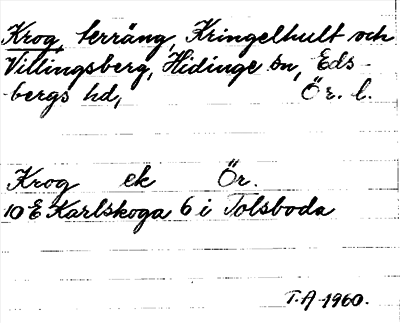 Krog, terräng, Kringelhult och
Villingsberg, Hidinge sn, Eds-
bergs hd, Ör. l.
Krog ek Ör.
10 E Karlskoga 6 i Tolsboda
T.A 1960.